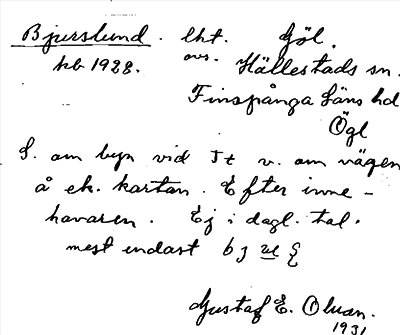 Bjurslund. lht. Göl.
kb 1928. avs. Hällestads sn.
Finspånga läns hd
Ögl
S. om byn vid Tt v. om vägen
å ek. kartan. Efter inne-
havaren. Ej i dagl. tal.
mest endast bj
Gustaf E. Olsson.
1931